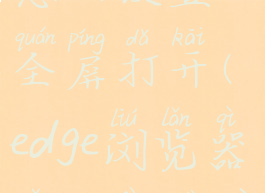 quán píng dǎ kāi
全屏打开(
liú lǎn qì
edge浏览器